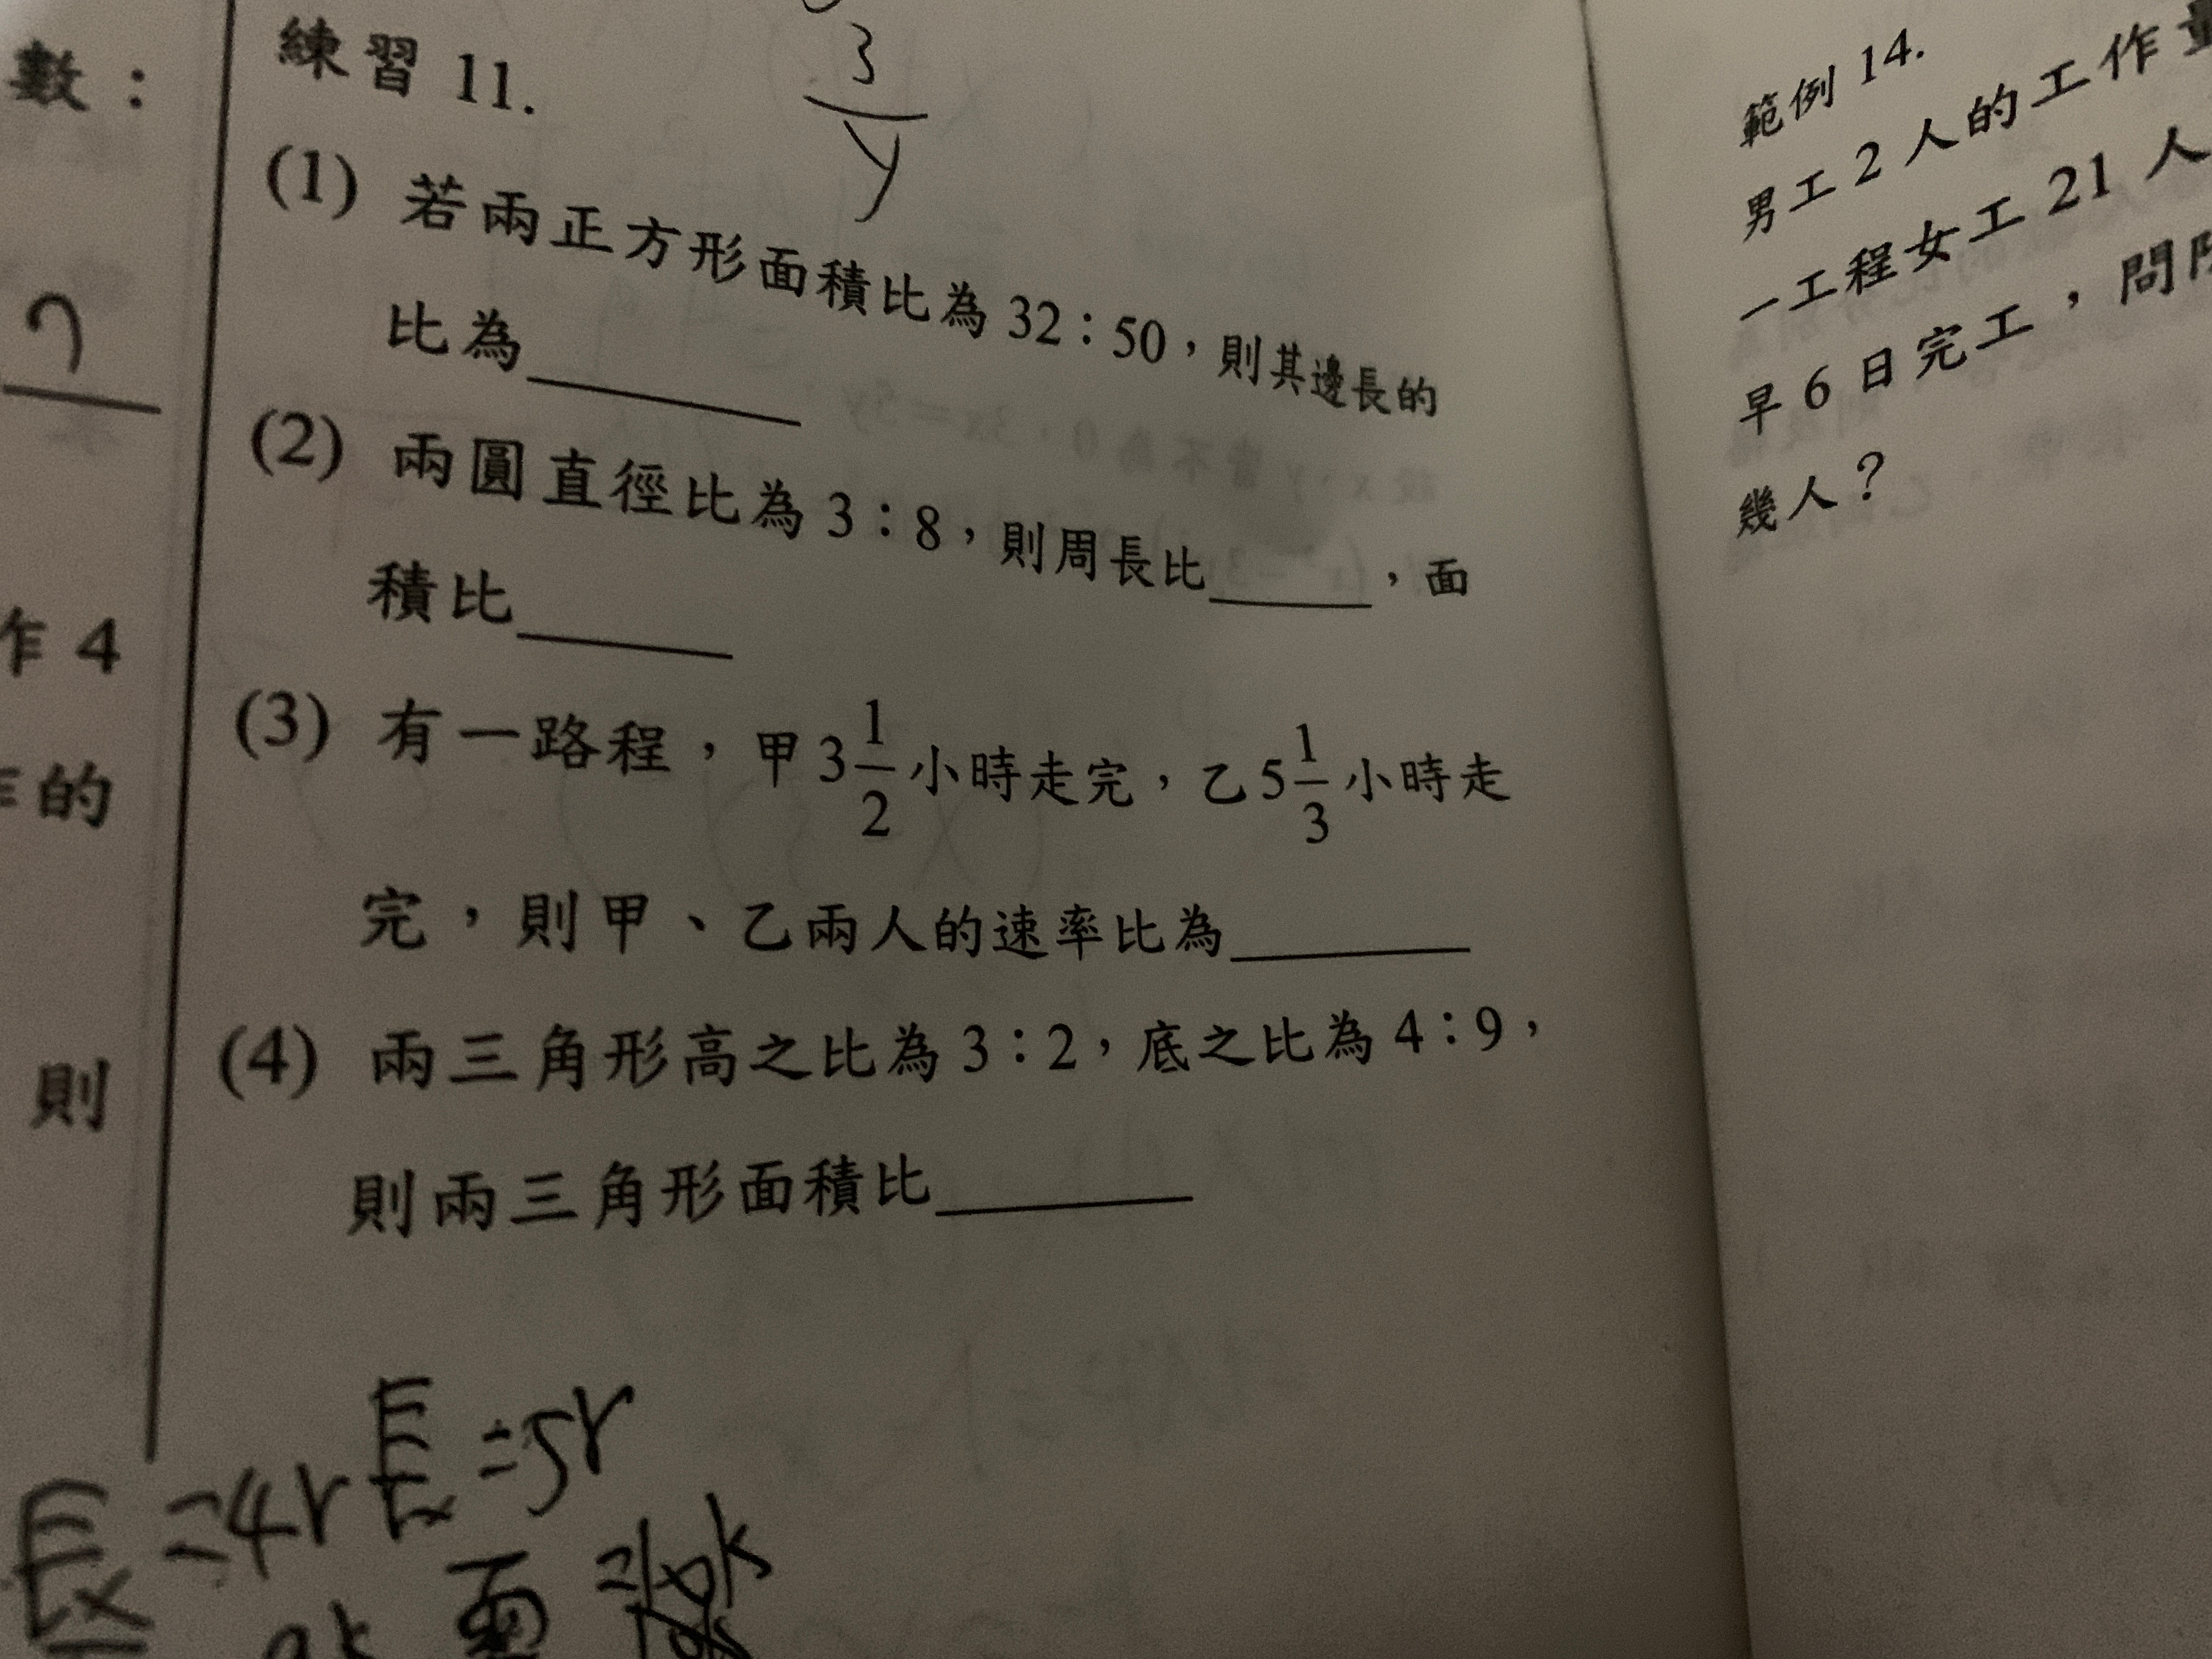 數：
作 4
的
則
練習 11.
3
y
(1) 若兩正方形面積比為 32：50，則其邊長的
比為
(2) 兩圓直徑比為 3：8，則周長比＿＿＿，面
積比
(3) 有一路程，甲 3 1/2 小時走完，乙 5 1/3 小時走
完，則甲、乙兩人的速率比為
(4) 兩三角形高之比為 3：2，底之比為 4：9，
則兩三角形面積比
長=4r 長=5r
面
範例 14.
男工 2 人的工作量
一工程女工 21 人
早 6 日完工，問
幾人？